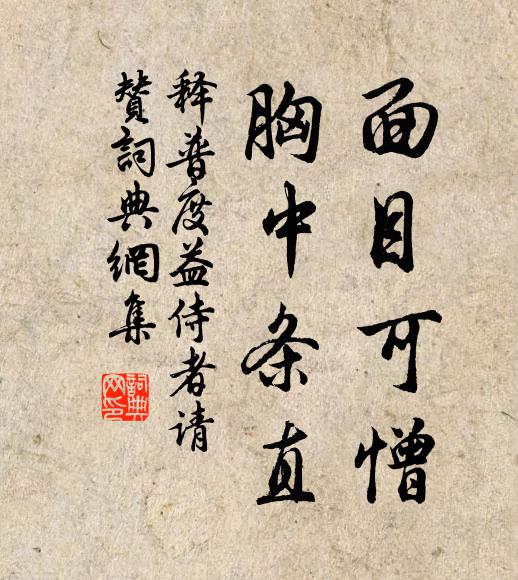 面目可憎
胸中条直
释普度益侍者请
赞詞典網集
詞典网印